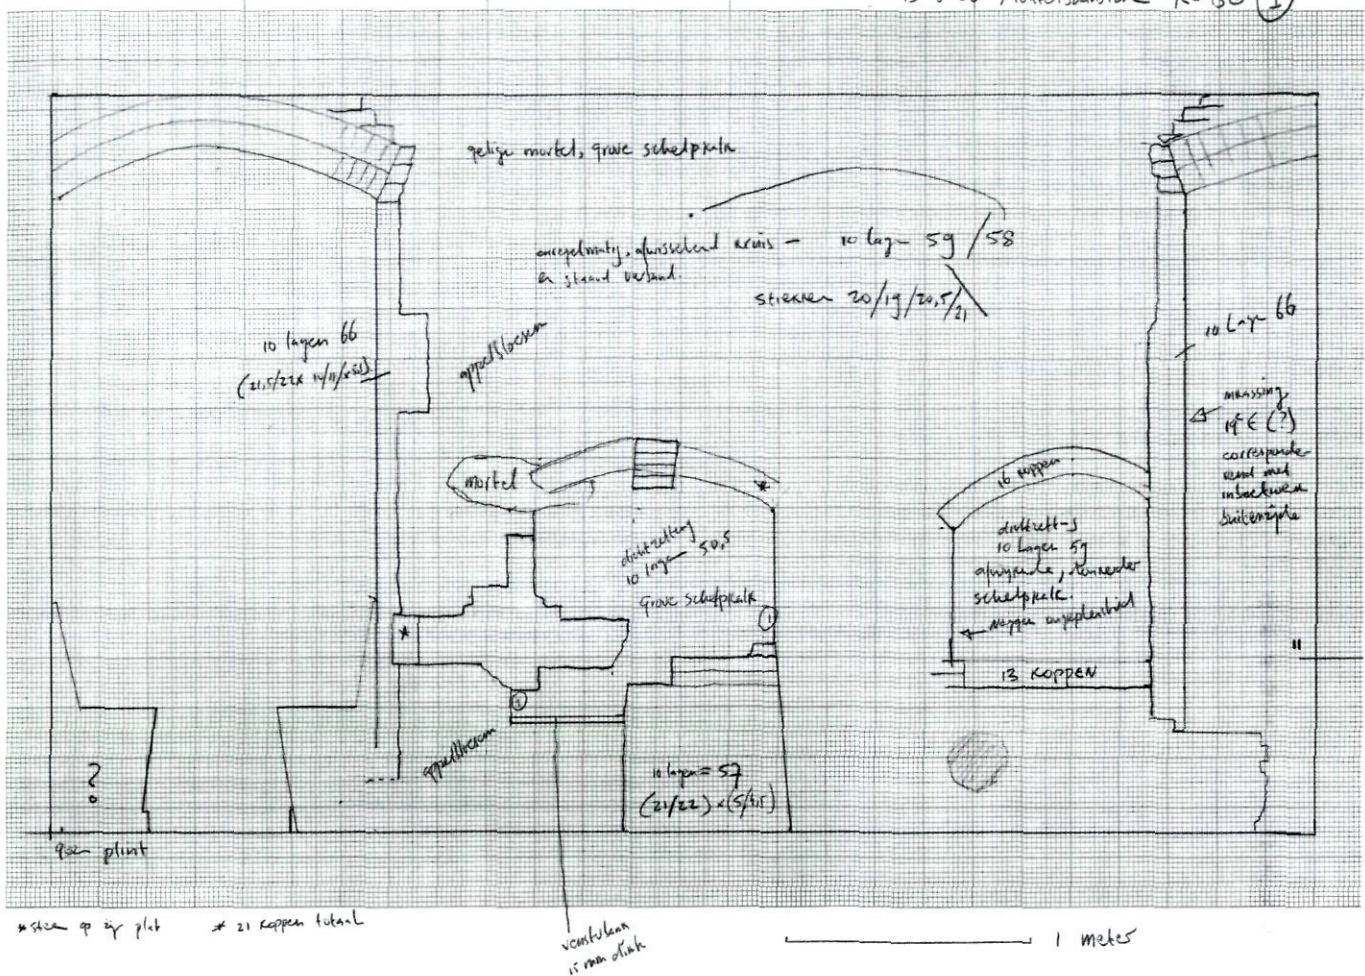 gelige mortel, grove schelpkalk
onregelmatig, afwisselend kruis -
en staand verband.
10 lagen 59/58
strekken 20/19/20,5/21
10 lagen 66
(21,5/22x 10/11/x
appelbloesem
10 lagen 66
inkassing
19e (?)
corresponde-
rend met
buitenzijde
mortel
*
dichtzetting
10 lagen 50,5
Grove schelpkalk
1
16 koppen
dichtzett-g
10 lagen 59
afwijkende,
schelpkalk.
13 KOPPEN
*
1
"
appelbloesem
?
10 lagen = 57
(21/22) x (5/4,5)
geen plint
* steen op zijn plat
* 21 koppen totaal
vensterbank
15 mm dik
1 meter